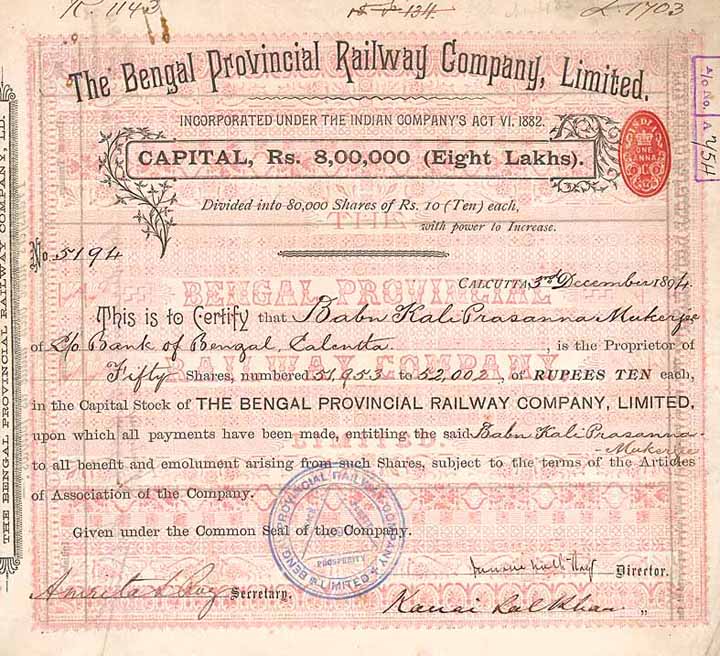 R. 1143 L. 1703
The Bengal Provincial Railway Company, Limited.
INCORPORATED UNDER THE INDIAN COMPANY'S ACT VI. 1882.
CAPITAL, Rs. 8,00,000 (Eight Lakhs).
INDIA
ONE ANNA
A/c No. A
Divided into 80,000 Shares of Rs. 10 (Ten) each,
with power to Increase.
THE
No. 5194
CALCUTTA, 3rd December 1894.
BENGAL PROVINCIAL
This is to Certify that Babu Kali Prasanna Mukerjee
of C/o Bank of Bengal, Calcutta. , is the Proprietor of
RAILWAY COMPANY
Fifty Shares, numbered 51,953 to 52,002, of RUPEES TEN each,
in the Capital Stock of THE BENGAL PROVINCIAL RAILWAY COMPANY, LIMITED,
upon which all payments have been made, entitling the said Babu Kali Prasanna
Mukerjee
LIMITED.
to all benefit and emolument arising from such Shares, subject to the terms of the Articles
of Association of the Company.
Given under the Common Seal of the Company.
BENGAL PROVINCIAL RAILWAY COMPANY LIMITED
PROSPERITY
Director.
Amrita L Roy Secretary.
Kanai Lal Khan "
THE BENGAL PROVINCIAL RAILWAY COMPANY, LD.